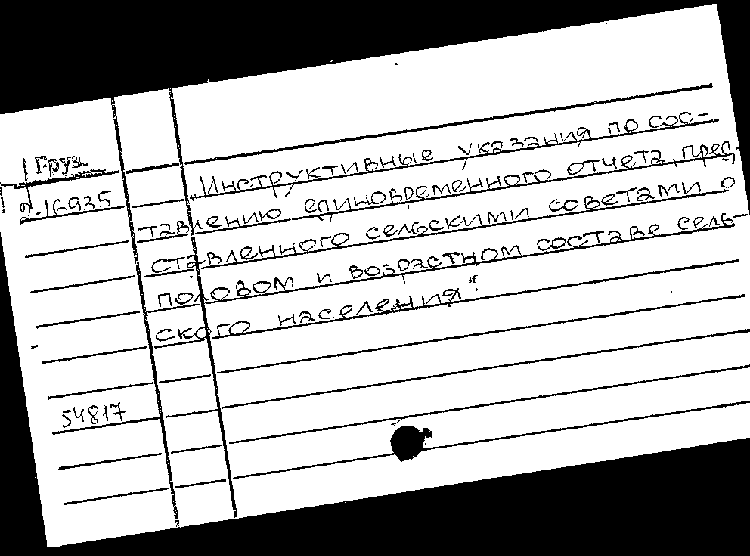 Груз.
2.16935
"Инструктивные указания по сос-
тавлению единовременного отчета, пред-
ставленного сельскими советами о
половом и возрастном составе сель-
ского населения".
54817